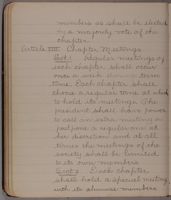 members as shall be elected
by a majority vote of the
chapter.
Article VIII Chapter Meetings
Sect. 1 Regular meetings of
each chapter shall occur
once a week during term
time. Each chapter shall
chose a regular time at which
to hold its meetings. The
president shall have power
to call an extra meeting or
postpone a regular one at
her discretion and at all
times the meetings of the
society shall be limited
to its own members.
Sect. 2 Each chapter
shall hold a special meeting
with its alumnae members